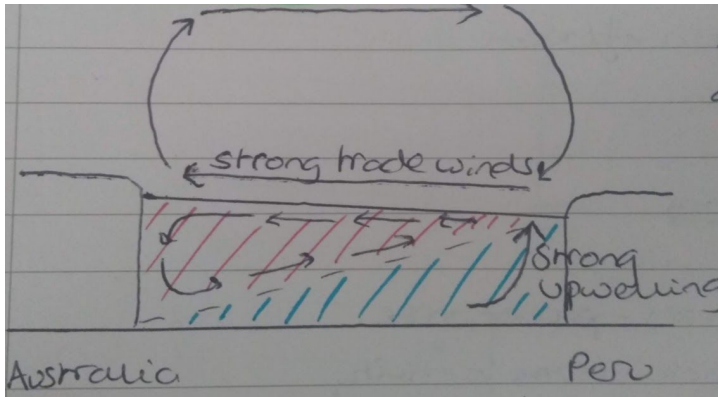 strong trade winds
strong
upwelling
Australia
Peru